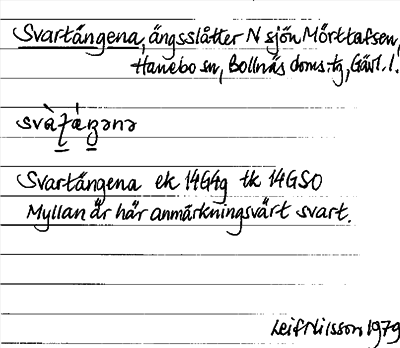 Svartängena, ängsslåtter N sjön Mörttafsen,
Hanebo sn, Bollnäs doms.tg, Gävl.l.
Svartängena ek 14G4g tk 14GSO
Myllan är här anmärkningsvärt svart.
Leif Nilsson 1979